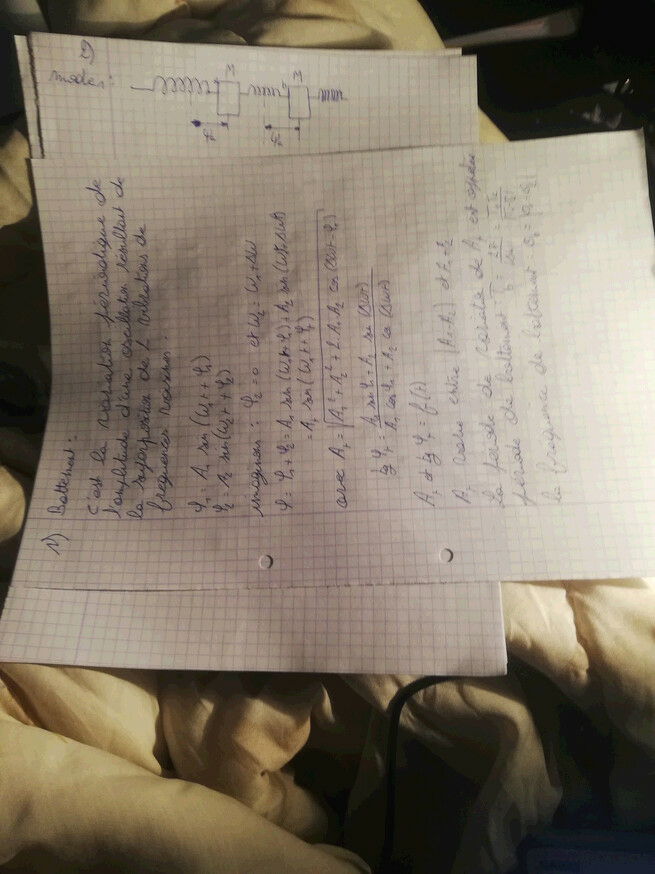 1) Battement :
c'est la variation périodique de
l'amplitude d'une oscillation résultant de
la superposition de 2 vibrations de
fréquences voisines.
φ₁ = A₁ sin (ω₁t + φ₁)
φ₂ = A₂ sin (ω₂t + φ₂)
imaginons : φ₂ = 0 et ω₂ = ω₁ + Δω
φ = φ₁ + φ₂ = A₁ sin (ω₁t + φ₁) + A₂ sin (ω₁t + Δωt)
= Aᵣ sin (ω₁t + φᵣ)
avec Aᵣ = √(A₁² + A₂² + 2 A₁ A₂ cos (Δωt - φ₁))
tg φᵣ = (A₁ sin φ₁ + A₂ sin (Δωt)) / (A₁ cos φ₁ + A₂ cos (Δωt))
Aᵣ et tg φᵣ = f(t)
Aᵣ varie entre |A₁ - A₂| et A₁ + A₂
la période de variation de Aᵣ est appelée
période de battement
la fréquence de battement
2)
modes :
M M